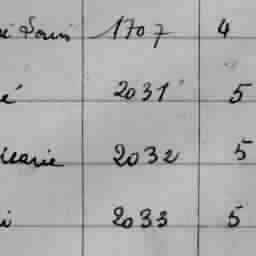 Louis 1707 4
é 2031 5
Marie 2032 5
i 2033 5